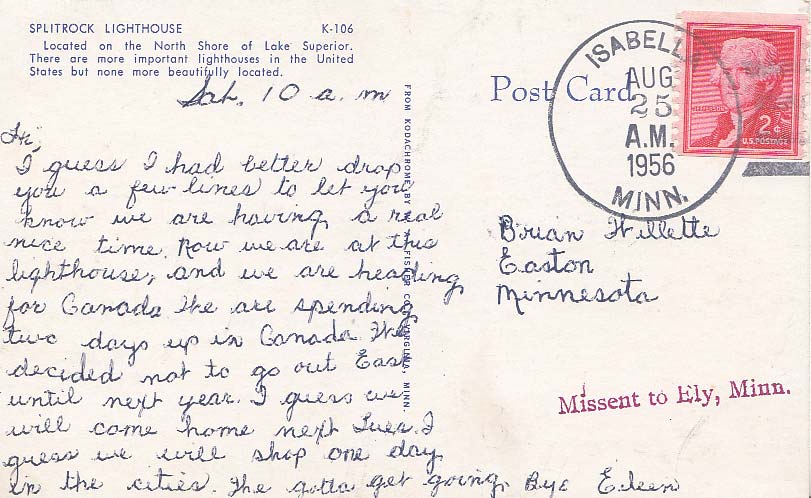 SPLITROCK LIGHTHOUSE K-106
Located on the North Shore of Lake Superior.
There are more important lighthouses in the United
States but none more beautifully located.
Sat. 10 a.m
Hi,
I guess I had better drop
you a few lines to let you
know we are having a real
nice time. Now we are at this
lighthouse, and we are heading
for Canada. We are spending
two days up in Canada. We
decided not to go out East
until next year. I guess we
will come home next Tues. I
guess we will shop one day
in the cities. We gotta get going. Bye Eileen
FROM KODACHROME BY FISHER CO. VIRGINIA, MINN.
Post Card
ISABELLA
AUG
25
A.M.
1956
MINN.
2¢
U.S. POSTAGE
Brian Willette
Easton
Minnesota
Missent to Ely, Minn.